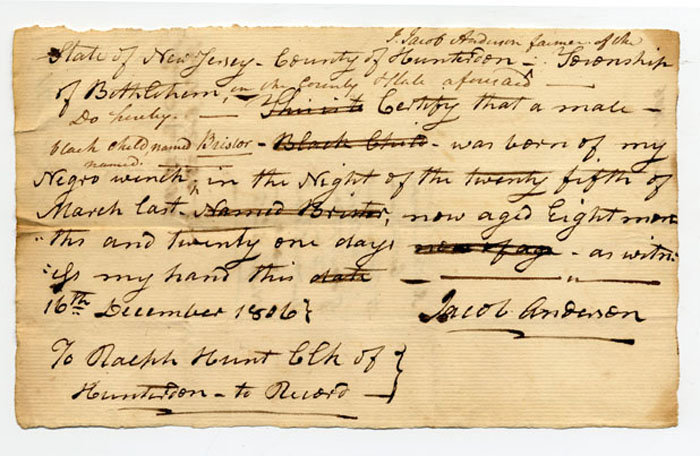 I. Jacob Anderson farmer of the
State of New Jersey - County of Hunterdon - Township
of Bethlehem, in the County & State aforesaid
Do hereby - This is to Certify that a male -
black child named Bristor - Black Child - was born of my
named.
Negro wench, in the Night of the twenty fifth of
March last - Named Brister, now aged Eight mon
"ths and twenty one days now of age - as witn
"ess my hand this date
16th December 1806} Jacob Anderson
To Ralph Hunt Clk of }
Hunterdon - to Record - }